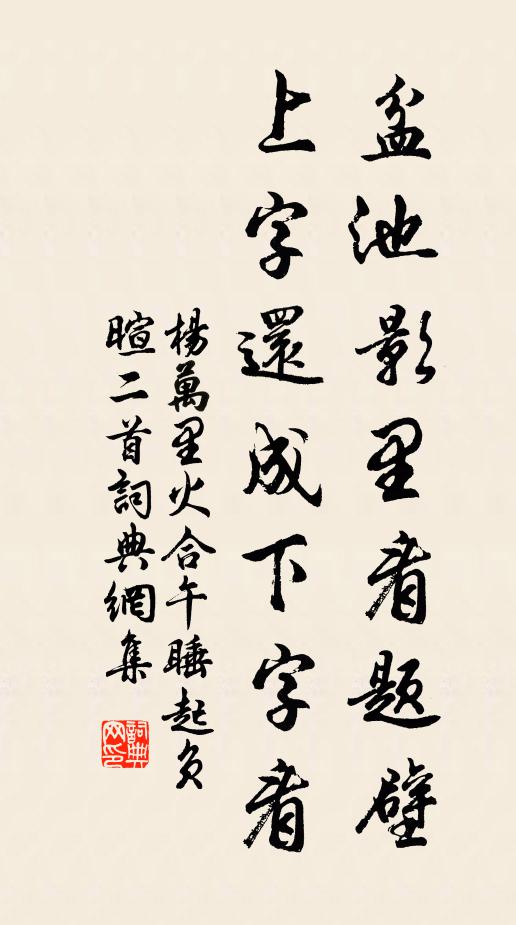 盆池影里看题壁
上字還成下字看
楊萬里火合午睡起负
暄二首詞典網集
詞典
网印